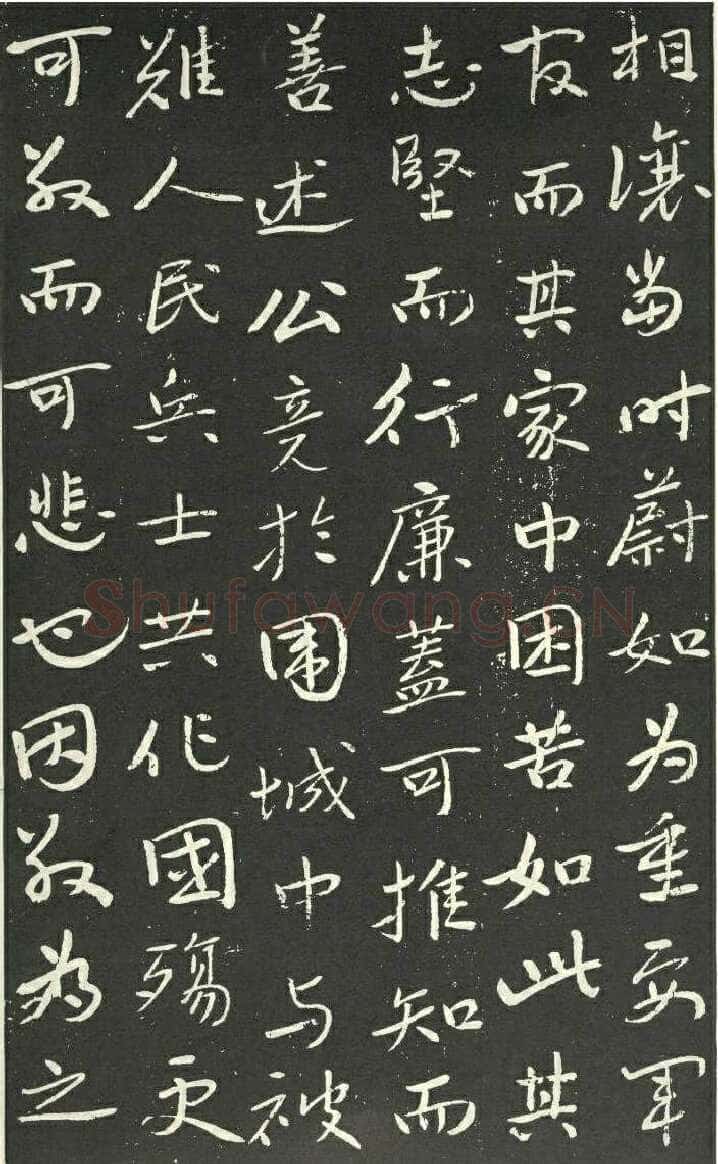 相讓當时蔚如为重要军
官而其家中困苦如此其
志堅而行廉蓋可推知而
善述公竟於围城中与被
難人民兵士共作國殤更
可敬而可悲也因敬為之
Shufawang.CN